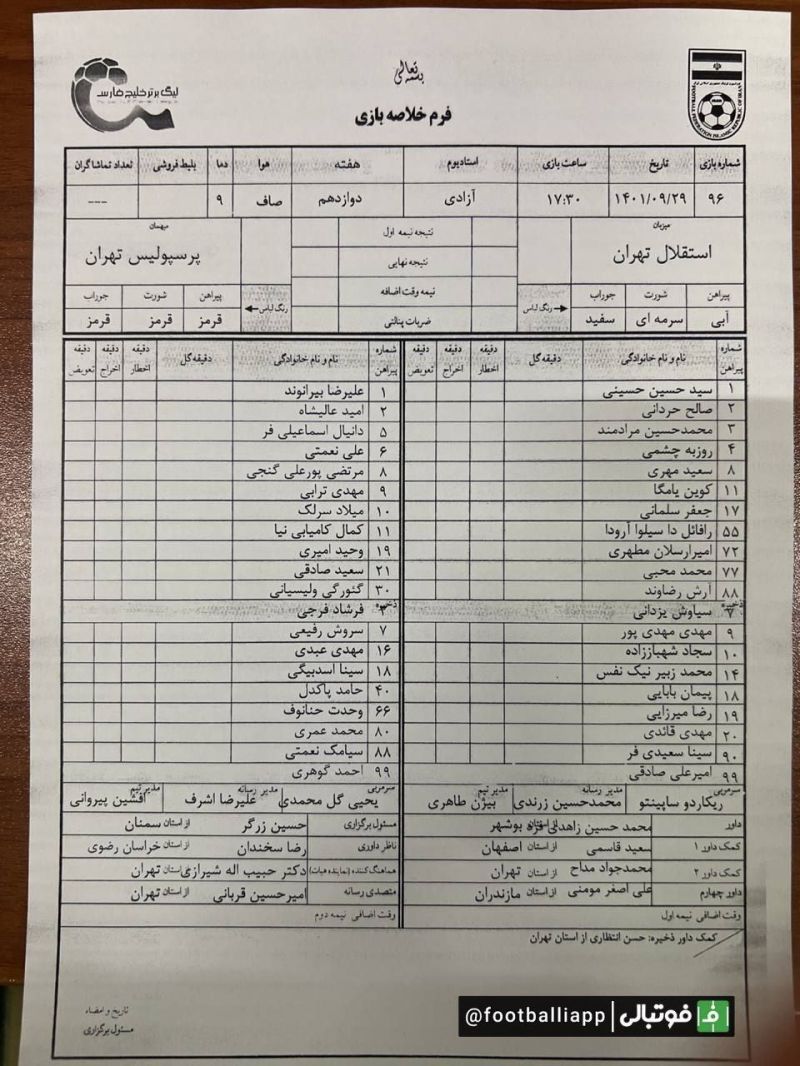 بسمه تعالی
لیگ برتر خلیج فارس
FOOTBALL FEDERATION ISLAMIC REPUBLIC OF IRAN
فرم خلاصه بازی
شماره بازی تاریخ ساعت بازی استادیوم هفته هوا دما بلیط فروشی تعداد تماشاگران
۹۶ ۱۴۰۱/۰۹/۲۹ ۱۷:۳۰ آزادی دوازدهم صاف ۹ ---
میزبان نتیجه نیمه اول میهمان
استقلال تهران نتیجه نهایی پرسپولیس تهران
پیراهن شورت جوراب رنگ لباس نیمه وقت اضافه رنگ لباس پیراهن شورت جوراب
آبی سرمه ای سفید ضربات پنالتی قرمز قرمز قرمز
شماره پیراهن نام و نام خانوادگی دقیقه گل دقیقه اخطار دقیقه اخراج دقیقه تعویض شماره پیراهن نام و نام خانوادگی دقیقه گل دقیقه اخطار دقیقه اخراج دقیقه تعویض
۱ سید حسین حسینی ۱ علیرضا بیرانوند
۲ صالح حردانی ۲ امید عالیشاه
۳ محمدحسین مرادمند ۵ دانیال اسماعیلی فر
۴ روزبه چشمی ۶ علی نعمتی
۸ سعید مهری ۸ مرتضی پورعلی گنجی
۱۱ کوین یامگا ۹ مهدی ترابی
۱۷ جعفر سلمانی ۱۰ میلاد سرلک
۵۵ رافائل دا سیلوا آرودا ۱۱ کمال کامیابی نیا
۷۲ امیرارسلان مطهری ۱۹ وحید امیری
۷۷ محمد محبی ۲۱ سعید صادقی
۸۸ آرش رضاوند ۳۰ گئورگی ولیسیانی
ذخیره ۷ سیاوش یزدانی ذخیره ۴ فرشاد فرجی
۹ مهدی مهدی پور ۷ سروش رفیعی
۱۰ سجاد شهباززاده ۱۶ مهدی عبدی
۱۴ محمد زبیر نیک نفس ۱۸ سینا اسدبیگی
۱۸ پیمان بابایی ۴۰ حامد پاکدل
۱۹ رضا میرزایی ۶۶ وحدت حنانوف
۲۰ مهدی قائدی ۸۰ محمد عمری
۹۰ سینا سعیدی فر ۸۸ سیامک نعمتی
۹۹ امیرعلی صادقی ۹۹ احمد گوهری
سرمربی ریکاردو ساپینتو مدیر رسانه محمدحسین زرندی مدیر تیم بیژن طاهری سرمربی یحیی گل محمدی مدیر رسانه علیرضا اشرف مدیر تیم افشین پیروانی
داور محمد حسین زاهدی فر از استان بوشهر مسئول برگزاری حسین زرگر از استان سمنان
کمک داور ۱ سعید قاسمی از استان اصفهان ناظر داوری رضا سخندان از استان خراسان رضوی
کمک داور ۲ محمدجواد مداح از استان تهران هماهنگ کننده (نماینده هیات) دکتر حبیب اله شیرازی از استان تهران
داور چهارم علی اصغر مومنی از استان مازندران متصدی رسانه امیرحسین قربانی از استان تهران
وقت اضافی نیمه اول وقت اضافی نیمه دوم
کمک داور ذخیره: حسن انتظاری از استان تهران
تاریخ و امضاء
مسئول برگزاری
@footballiapp | فوتبالی